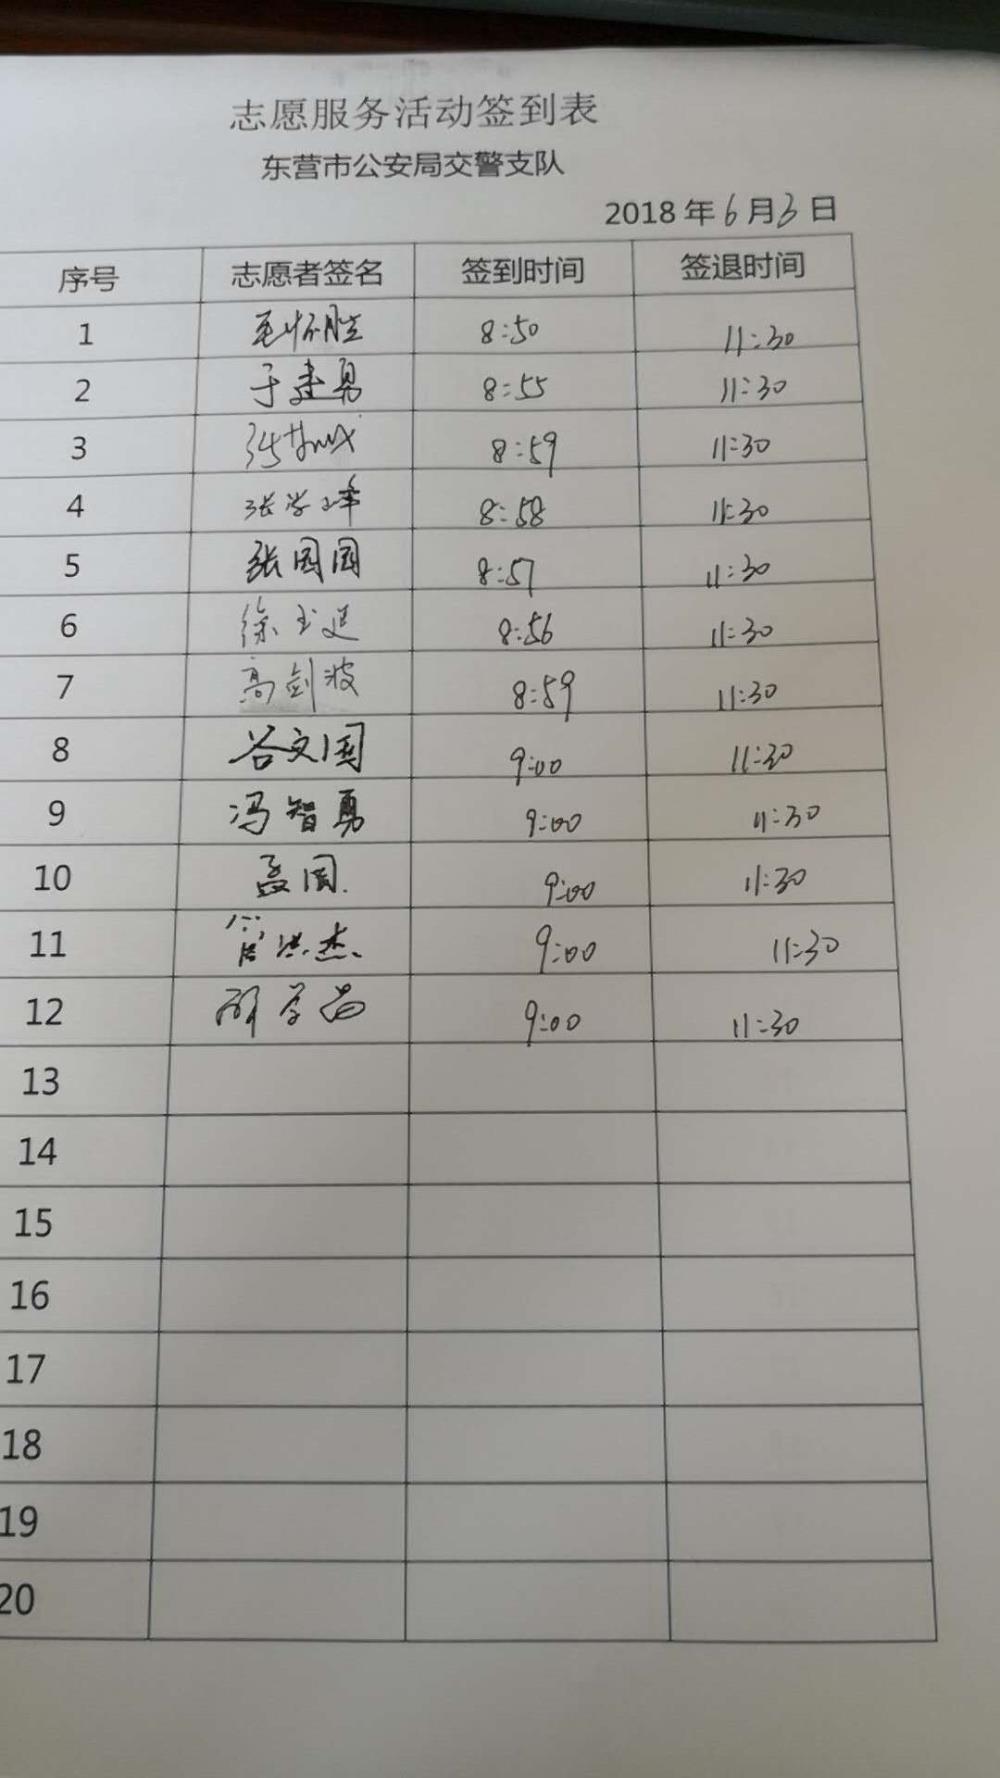 志愿服务活动签到表
东营市公安局交警支队
2018 年 6 月 3 日
序号 志愿者签名 签到时间 签退时间
1 毛怀胜 8:50 11:30
2 于建勇 8:55 11:30
3 8:59 11:30
4 张学峰 8:58 11:30
5 张国国 8:57 11:30
6 徐玉廷 8:56 11:30
7 高剑波 8:59 11:30
8 谷文国 9:00 11:30
9 冯智勇 9:00 11:30
10 孟国 9:00 11:30
11 管洪杰 9:00 11:30
12 9:00 11:30
13
14
15
16
17
18
19
20